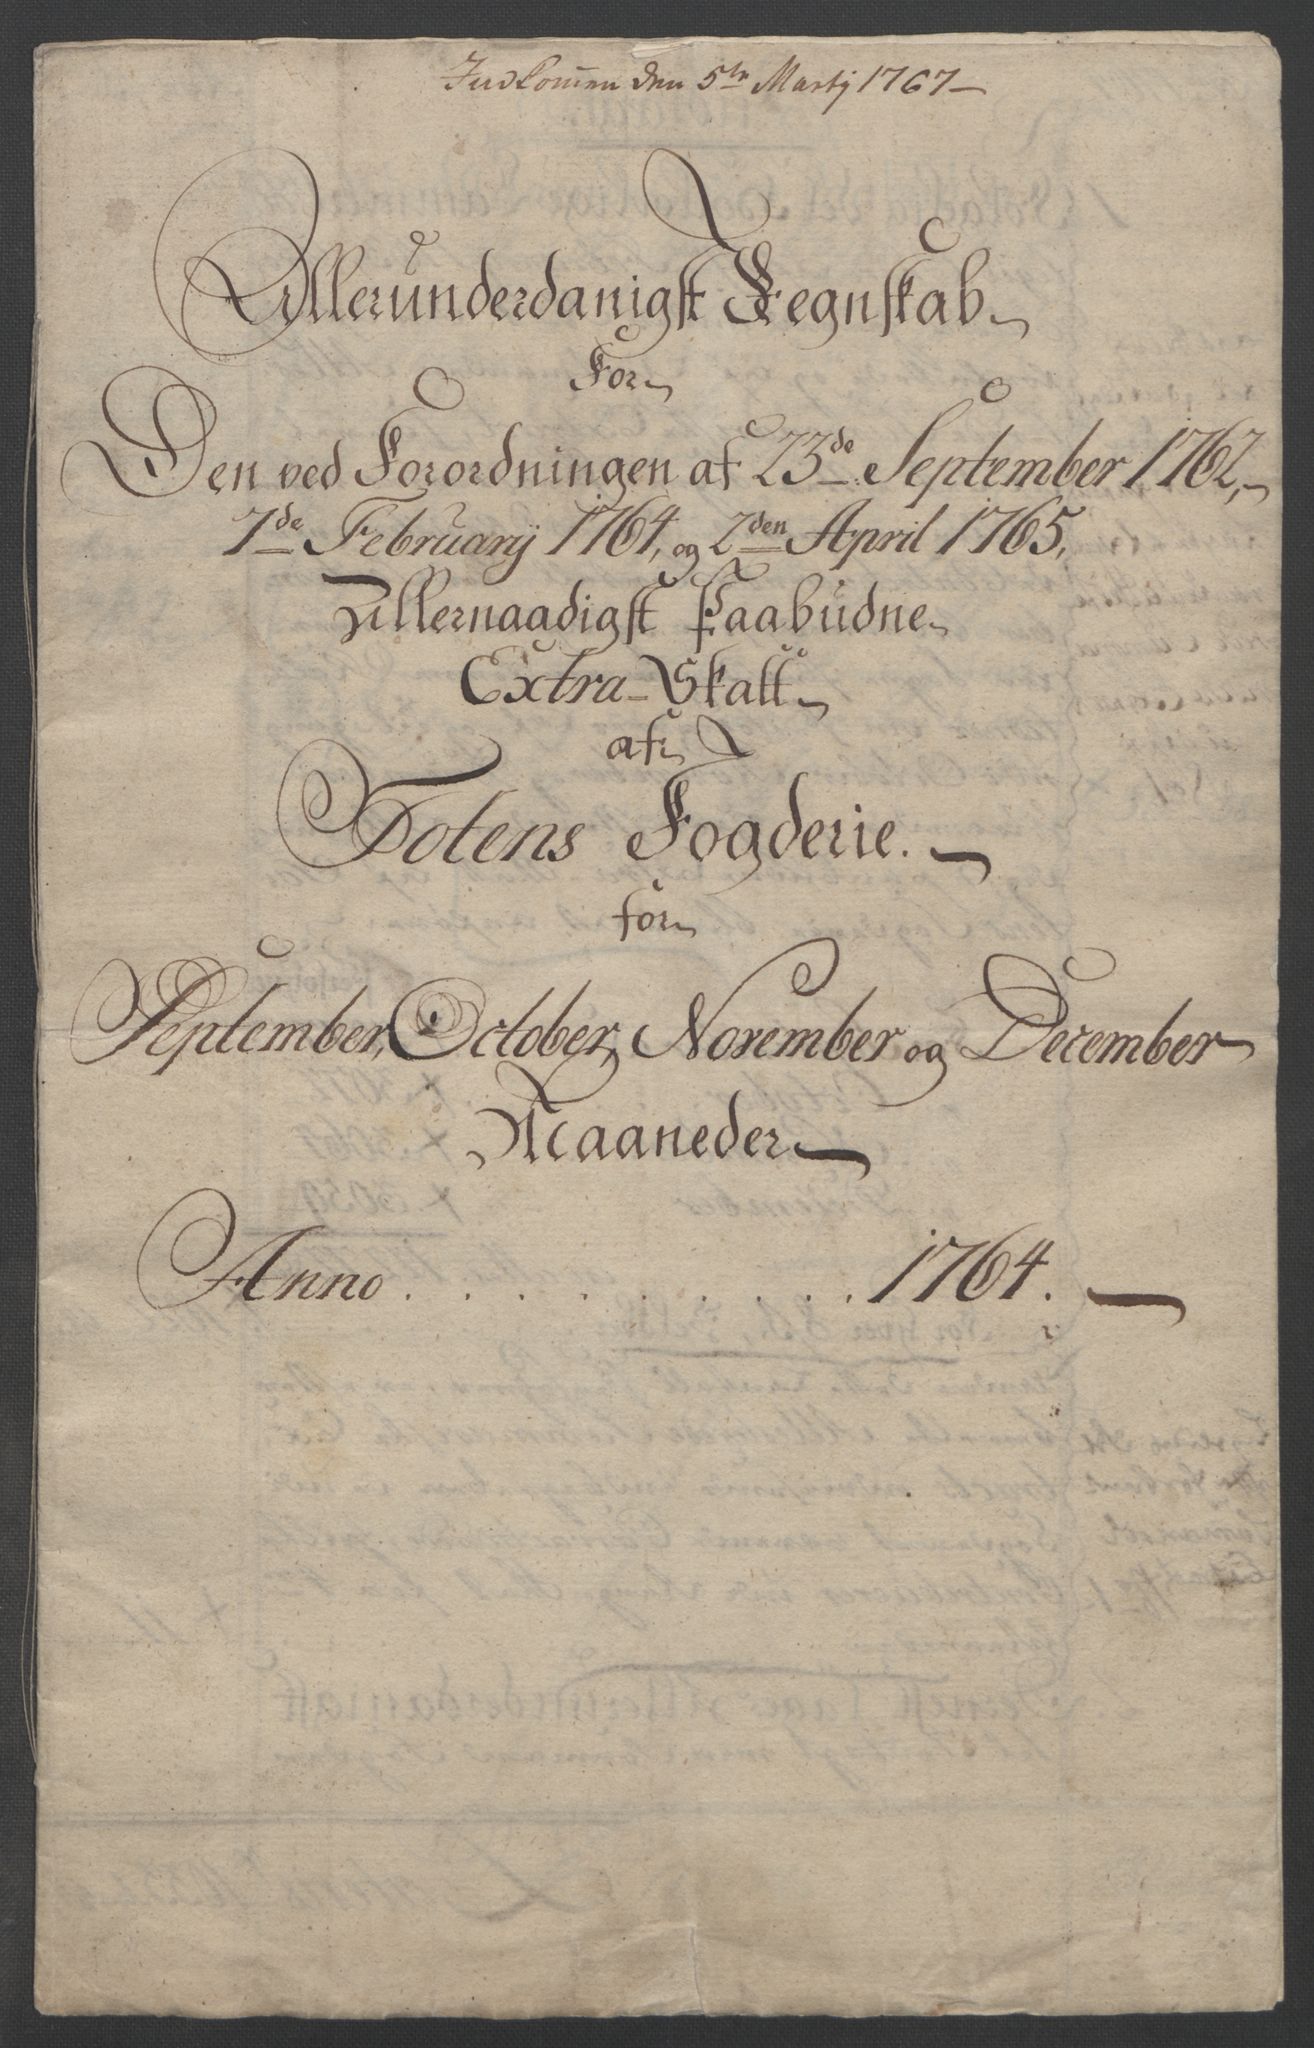 Indkommen den 5te Martij 1767
Allerunderdanigst Regnskab
For
Den ved Forordningen af 23de September 1762,
7de Februarij 1764, og 2den April 1765,
Allernaadigst Paabudne
Extra-Skatt
af
Totens Fogderie.
for
September, October, November og December
Maaneder
Anno . . . . . . . . . 1764.